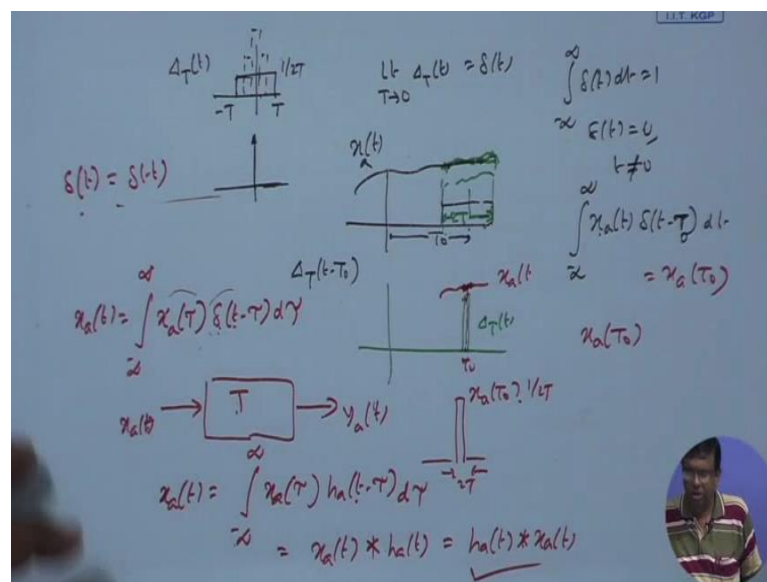 I.I.T. KGP
Δ_T(t)
1/2T
-T T
lt Δ_T(t) = δ(t)
T→0
∫_{-∞}^{∞} δ(t) dt = 1
δ(t) = 0,
t ≠ 0
δ(t) = δ(-t)
x_a(t)
2T
T_0
∫_{-∞}^{∞} x_a(t) δ(t-T_0) dt
= x_a(T_0)
Δ_T(t-T_0)
x_a(t
Δ_T(t)
T_0
x_a(T_0)
x_a(t) = ∫_{-∞}^{∞} x_a(τ) δ(t-τ) dτ
x_a(t) → T → y_a(t)
x_a(T_0). 1/2T
2T
x_a(t) = ∫_{-∞}^{∞} x_a(τ) h_a(t-τ) dτ
= x_a(t) * h_a(t) = h_a(t) * x_a(t)